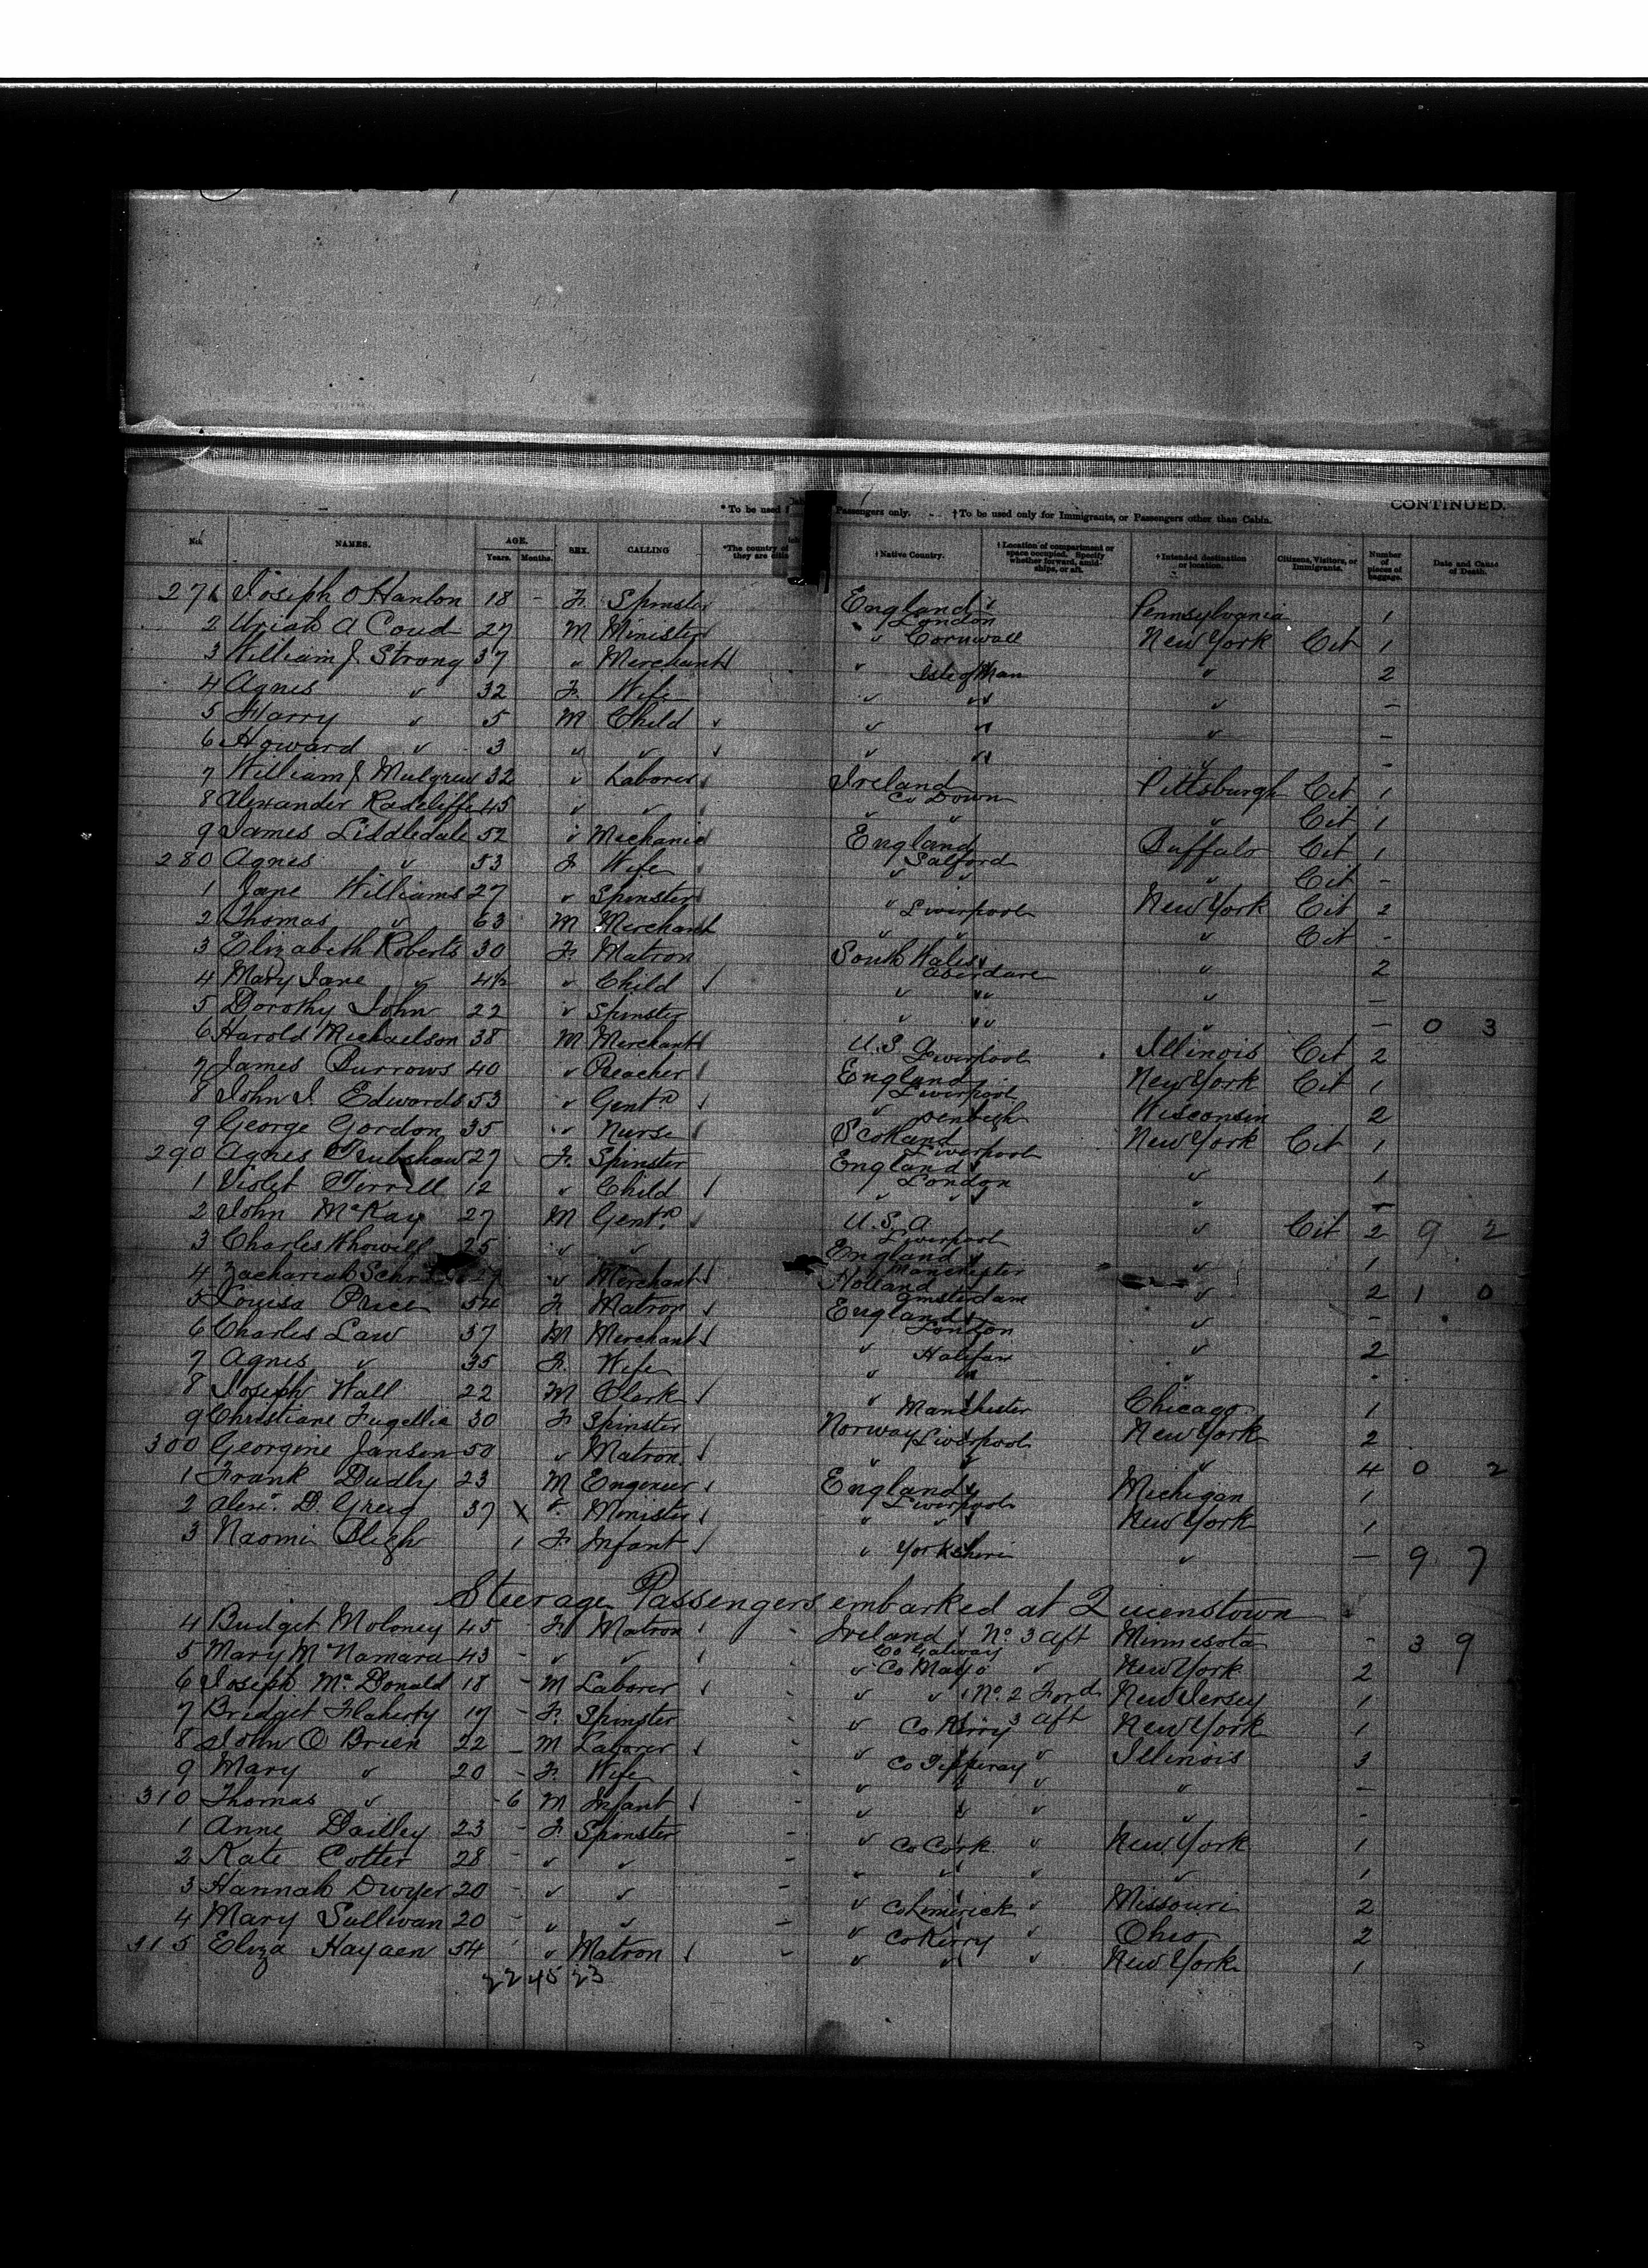 CONTINUED.
* To be used f Passengers only. † To be used only for Immigrants, or Passengers other than Cabin.
No. NAMES. AGE. Years. Months. SEX. CALLING *The country of they are citiz †Native Country. †Location of compartment or space occupied. Specify whether forward, amidships, or aft. †Intended destination or location. Citizens, Visitors, or Immigrants. Number of pieces of baggage. Date and Cause of Death.
271 Joseph O Hanlon 18 - F. Spinster England London Pennsylvania 1
2 Uriah A Coud 27 M Minister " Cornwall New York Cit 1
3 William J. Strong 37 " Merchant " Isle of Man " 2
4 Agnes " 32 F. Wife " " " -
5 Harry " 5 M Child " " " -
6 Howard " 3 " " " " " -
7 William J Mulgrew 32 " Laborer Ireland Co Down Pittsburgh Cit 1
8 Alexander Radcliffe 45 " " " " " Cit 1
9 James Liddledale 52 " Mechanic England Salford Buffalo Cit 1
280 Agnes " 53 F Wife " " " Cit -
1 Jane Williams 27 " Spinster " Liverpool New York Cit 2
2 Thomas " 63 M Merchant " " " Cit -
3 Elizabeth Roberts 30 F. Matron South Wales Aberdare " 2
4 Mary Jane " 4½ " Child " " " -
5 Dorothy John 22 " Spinster " " " - 0 3
6 Harold Michaelson 38 M Merchant U.S. A Liverpool Illinois Cit 2
7 James Burrows 40 " Preacher England Liverpool New York Cit 1
8 John I. Edwards 53 " Gentn " Denbigh Wisconsin 2
9 George Gordon 35 " Nurse Scotland Liverpool New York Cit 1
290 Agnes Trubshaw 27 F. Spinster England London " 1
1 Violet Tirrill 12 " Child " " " -
2 John McKay 27 M Gentn U.S. A Liverpool " Cit 2 9 2
3 Charles 25 " " England Manchester " 1
4 Zachariah 27 " Merchant Holland Amsterdam " 2 1 0
5 Louisa Price 54 F. Matron England London " -
6 Charles Law 37 M Merchant " Halifax " 2
7 Agnes " 35 F. Wife " " " -
8 Joseph Wall 22 M Clerk " Manchester Chicago 1
9 Christiane Fugellie 30 F Spinster Norway Liverpool New York 2
300 Georgine Jansen 50 " Matron " " " 4 0 2
1 Frank Dudly 23 M Engineer England Liverpool Michigan 1
2 Alexr. D. Greig 37 X " Minister " " New York 1
3 Naomi Bligh 1 F Infant " Yorkshire " - 9 7
Steerage Passengers embarked at Queenstown
4 Bridget Moloney 45 - F. Matron Ireland Co Galway No. 3 Aft Minnesota - 3 9
5 Mary McNamara 43 - " " " Co Mayo " New York 2
6 Joseph McDonald 18 - M Laborer " " No. 2 Ford New Jersey 1
7 Bridget Flaherty 17 - F. Spinster " Co Kerry 3 Aft New York 1
8 John O Brien 22 - M Laborer " Co Tipperay " Illinois 3
9 Mary " 20 - F. Wife " " " " -
310 Thomas " - 6 M Infant " " " " -
1 Anne Dailley 23 - F Spinster " Co Cork " New York 1
2 Kate Cotter 28 - " " " " " " 1
3 Hannah Dwyer 20 - " " " Co Limerick " Missouri 2
4 Mary Sullivan 20 - " " " Co Kerry " Ohio 2
315 Eliza Hayden 54 " Matron " " " New York 1
22 45 23